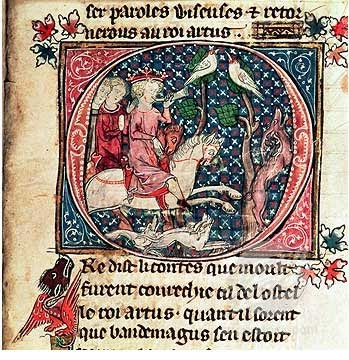 ser paroles wiseuses et retor
nerons au roi artus.
Ore dist li contes que moult
furent courechie cil del ostel
le roi artus. quant il sorent
que bandemagus sen estoit